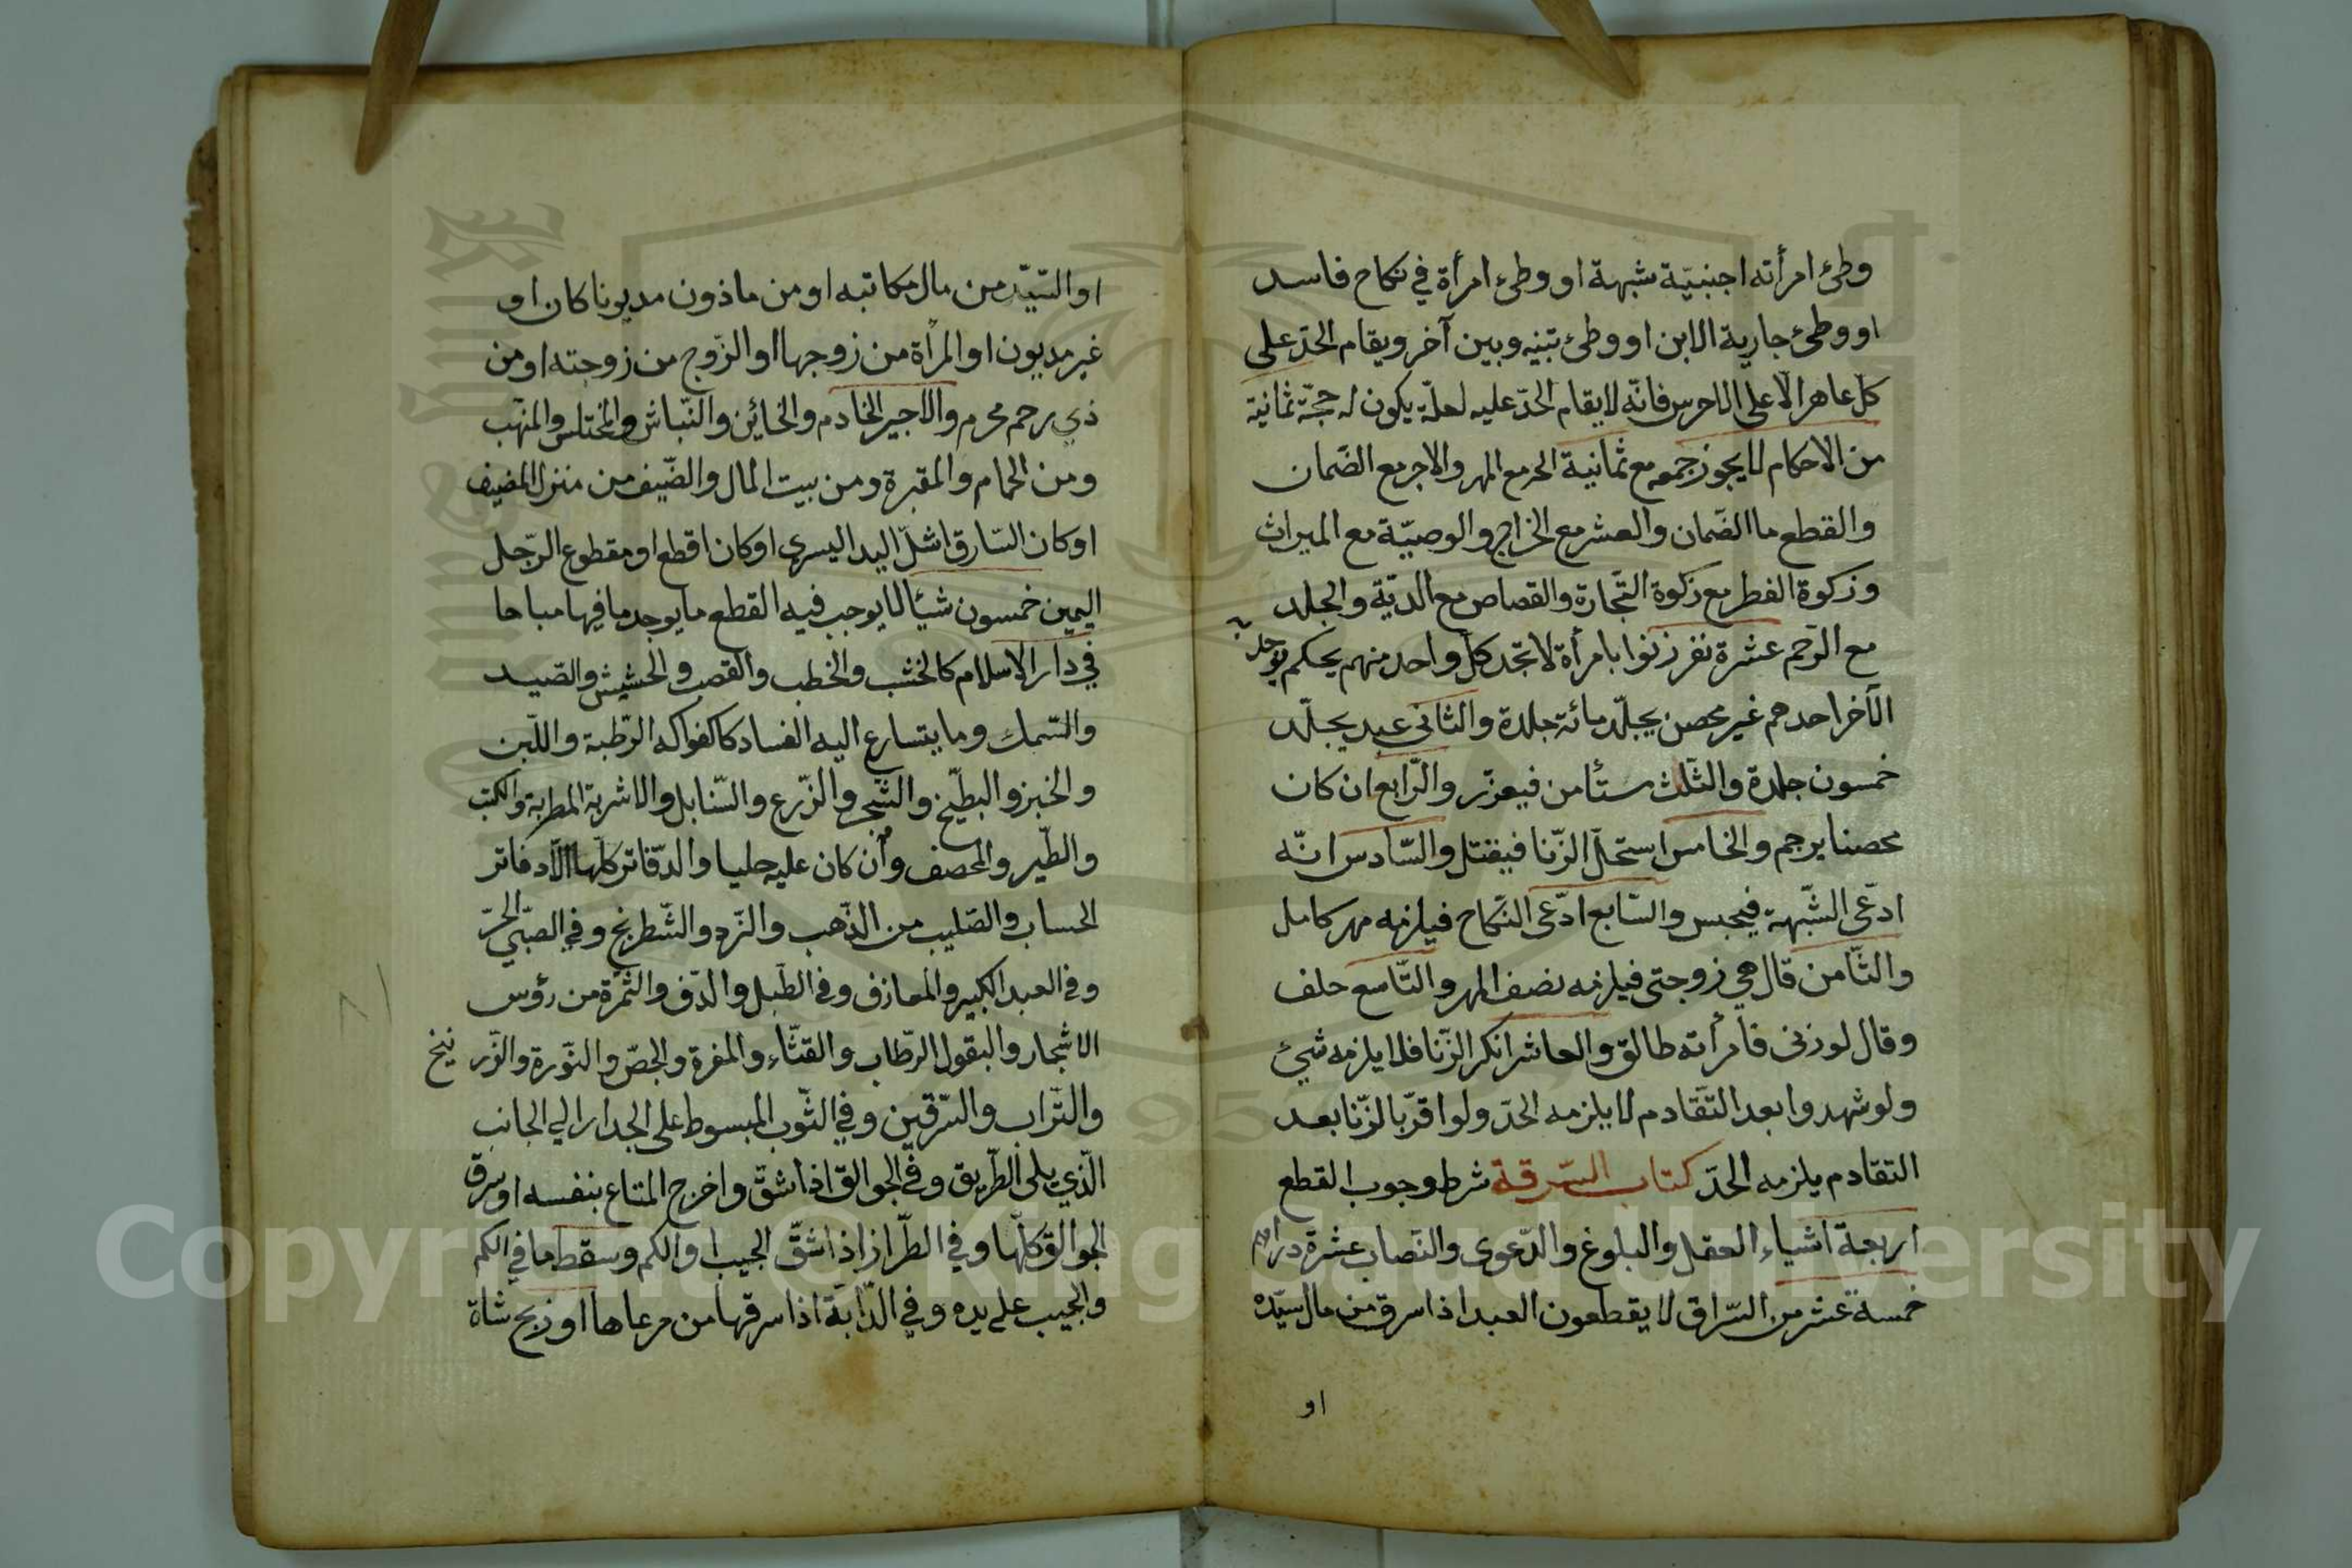 وطئ امرأته اجنبيّة شبهة او وطئ امرأة في نكاح فاسد
او وطئ جارية الابن او وطئ بينه وبين آخر ويقام الحدّ على
كل عاهر الا على الاخرس فانّه لا يقام الحدّ عليه لعلّة يكون له حجّة ثمانية
من الاحكام لا يجوز جمعه مع ثمانية الحر مع المهر والاجر مع الضمان
والقطع ما الضمان والعشر مع الخراج والوصيّة مع الميراث
وزكوة الفطر مع زكوة التّجارة والقصاص مع الديّة والجلد
مع الرّجم عشرة نفر زنوا بامرأة لا تجّد كل واحد منهم يحكم يوجد
الآخر احدهم غير محصن يجلّد مائة جلدة والثاني عبد يجلّد
خمسون جلدة والثلث ستأمن فيعزّر والرّابع ان كان
محصنا يرجم والخامس استحلّ الزّنا فيقتل والسّادس انّه
ادّعى الشّبهة فيحبس والسّابع ادّعى النّكاح فيلزمه مهر كامل
والثّامن قال هي زوجتى فيلزمه نصف المهر والتّاسع حلف
وقال لو زنى فامرأته طالق والعاشر انكر الزّنا فلا يلزمه شيئ
ولو شهدوا بعد التّقادم لا يلزمه الحدّ ولو اقرّ بالزّنا بعد
التقادم يلزمه الحدّ كتاب السّرقة شرط وجوب القطع
اربعة اشياء العقل والبلوغ والدّعوى والنّصاب عشرة دراهم
خمسة عشر من السّراق لا يقطعون العبد اذا سرق من مال سيّده
او
او السّيّد من مال مكاتبه او من ماذون مديونا كان او
غير مديون او المرأة من زوجها او الزّوج من زوجته او من
ذي رحم محرم والاجير الخادم والخائن والنّباش والمختلس والمنهّب
ومن الحمام والمقبرة ومن بيت المال والضّيف من منزل المضيف
او كان السّارق اشلّ اليد اليسرى او كان اقطع او مقطوع الرّجل
اليمين خمسون شيئا لا يوجب فيه القطع ما يوجد ما فيها مباحا
في دار الاسلام كالخشب والخطب والقصب والحشيش والصّيد
والسّمك وما يتسارع اليه الفساد كالفواكه الرّطبة واللّبن
والخبز والبطّيخ والشّجر والزّرع والسّنابل والاشربة المطربة والكتب
والطّير والمصحف وان كان عليه حليا والدّفاتر كلّها الّا دفاتر
الحساب والصّليب من الذّهب والنّرد والشّطرنج وفي الصبّي الحرّ
وفي العبد الكبير والمعازف وفي الطّبل والدّف والثّمرة من رؤس
الاشجار والبقول الرّطاب والقثّاء والمغرة والجصّ والنّورة والزّر نيخ
والتّراب والسّرقين وفي الثّوب المبسوط على الجدار الي الجانب
الّذي يلى الطّريق وفي الجوالق اذا شقّ واخرج المتاع بنفسه او سرق
الجوالق كلّها وفي الطّراز اذا شقّ الجيب او الكم وسقط ما في الكم
والجيب على يده وفي الدّابّة اذا سرقها من مرعاها او ذبح شاة
Copyright © King Saud University